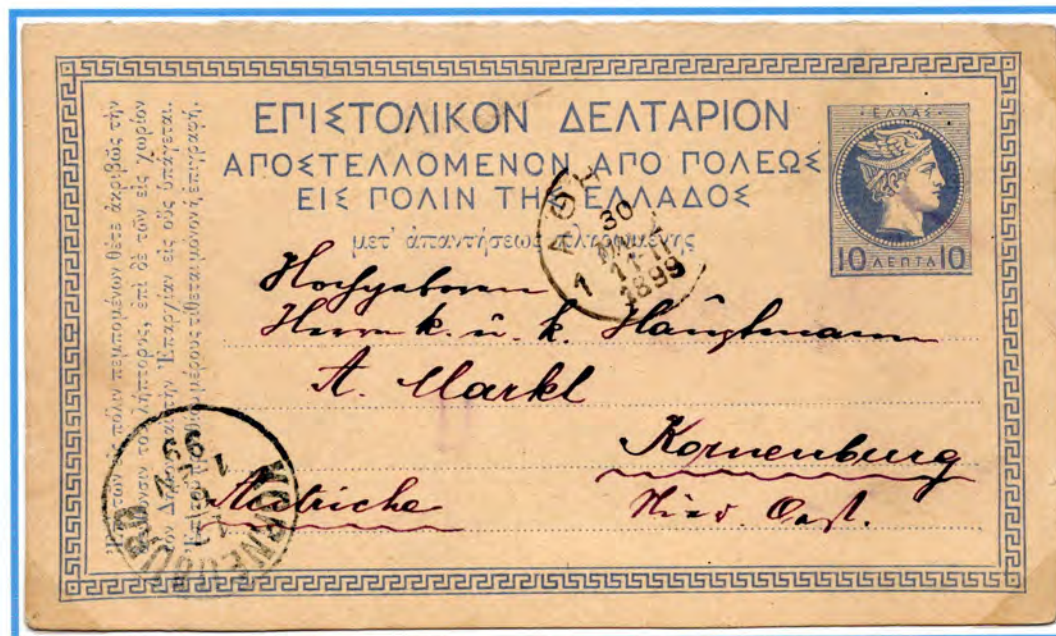 ΕΠΙΣΤΟΛΙΚΟΝ ΔΕΛΤΑΡΙΟΝ
ΑΠΟΣΤΕΛΛΟΜΕΝΟΝ ΑΠΟ ΠΟΛΕΩΣ
ΕΙΣ ΠΟΛΙΝ ΤΗΣ ΕΛΛΑΔΟΣ
μετ' ἀπαντήσεως πληρωμένης
ΕΛΛΑΣ
10 ΛΕΠΤΑ 10
ΑΘΗ
30
11-11
1899
1
Hochgeboren
Herrn k. u. k. Hauptmann
A. Markl
Korneuburg
Autriche
Nied. Oest.
KORNEUBURG
99
τῶν εἰς πόλιν πεμπομένων θέτε ἀκριβῶς τὴν
τοῦ λήπτορος, ἐπὶ δὲ τῶν εἰς χωρίον
τὴν Ἐπαρχίαν εἰς οὓς ὑπάγεται.
μέρους τίθεται μόνον ἡ ἐπιγραφή.